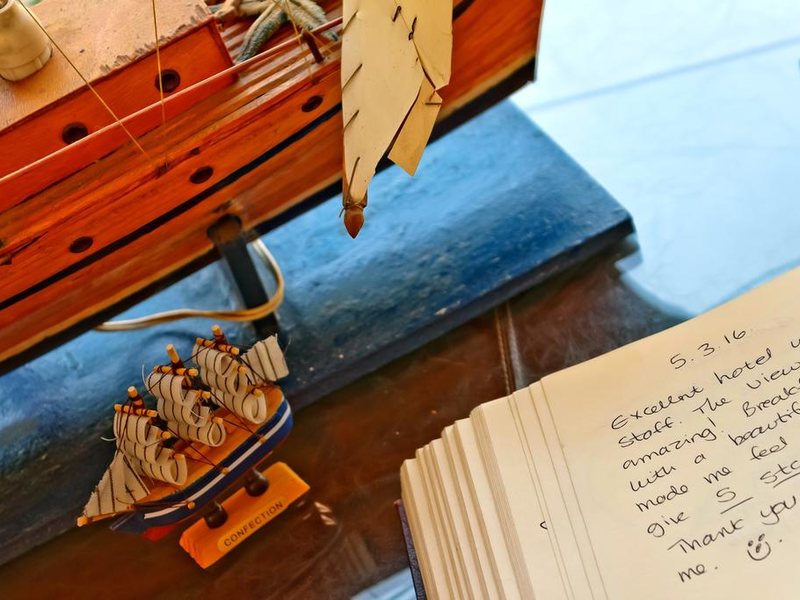 CONFECTION
5.3.16
Excellent hotel
staff. The view
amazing!
with a
made me feel
give 5
Thank you
me.